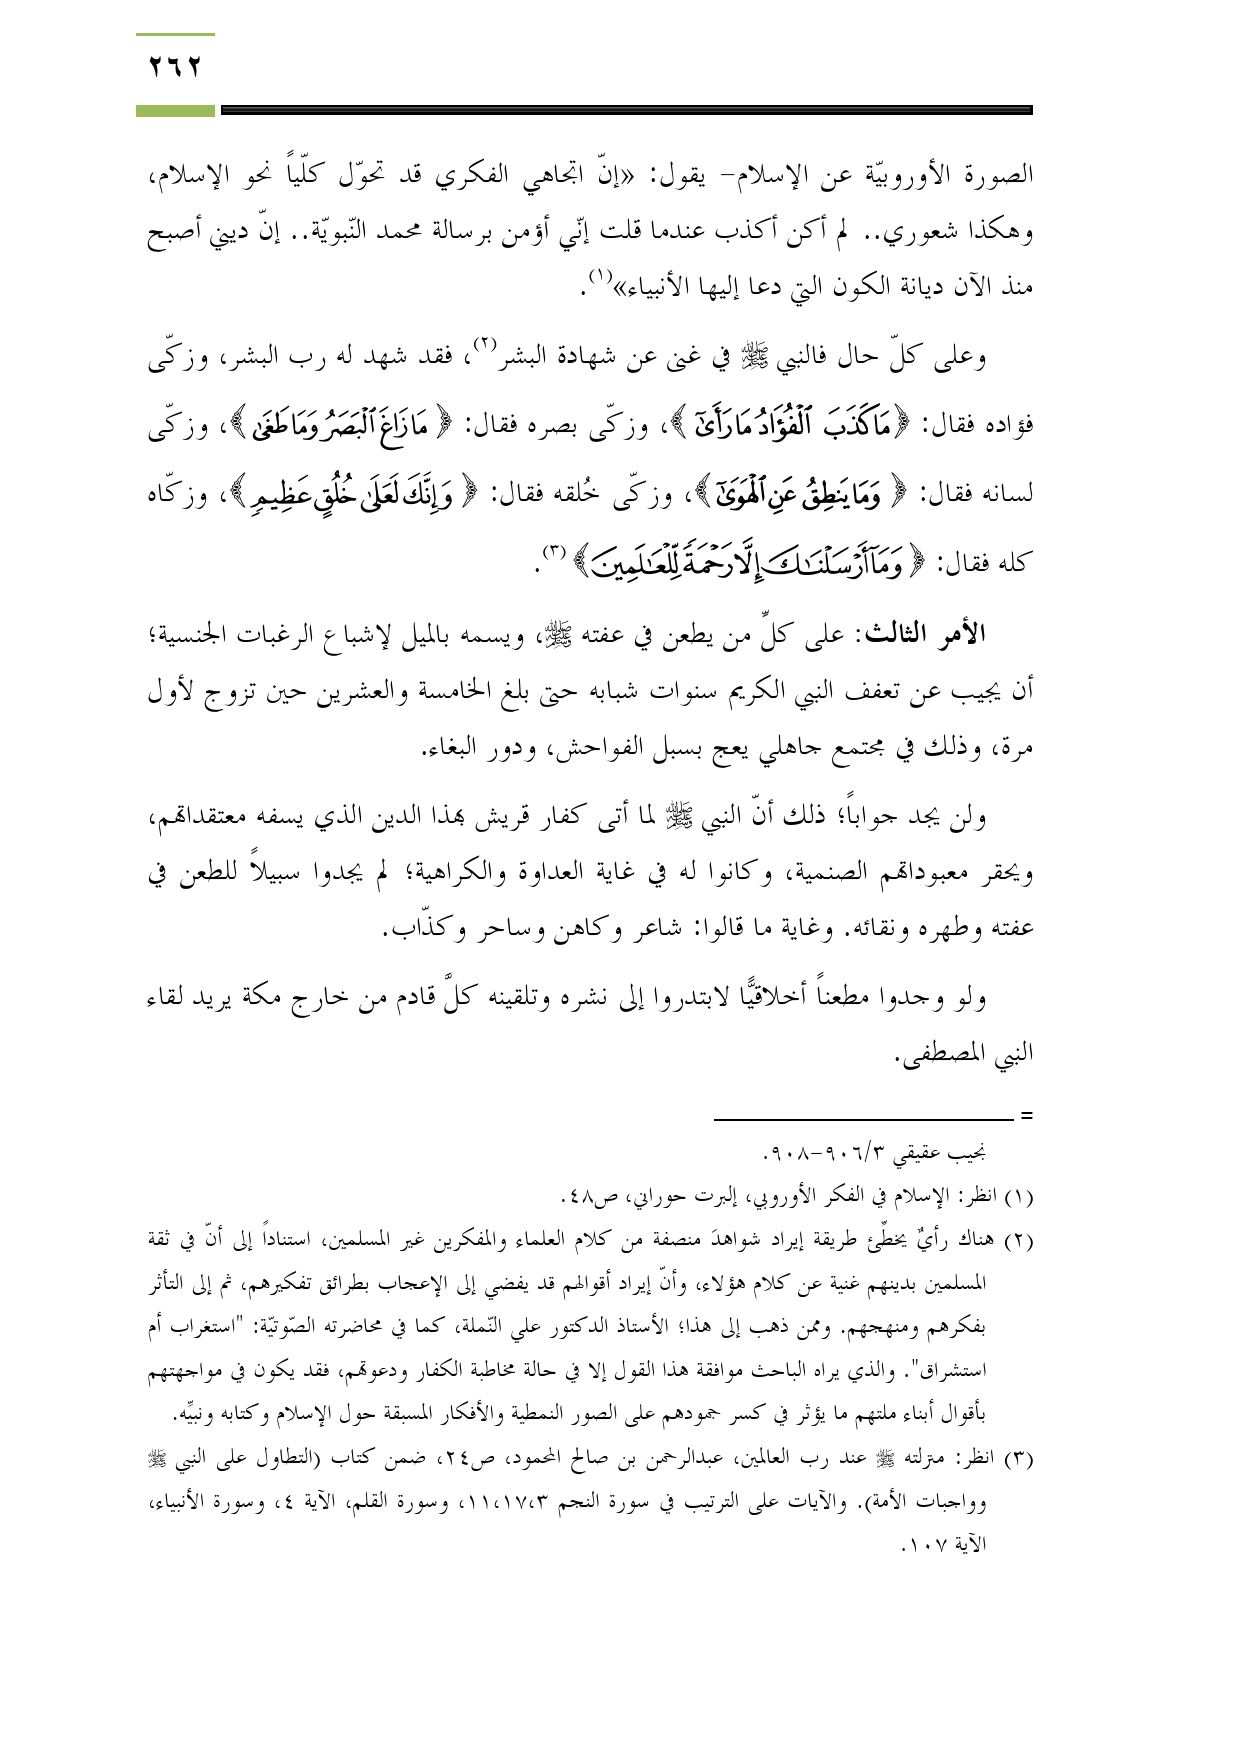 ٢٦٢
الصورة الأوروبيّة عن الإسلام– يقول: «إنّ اتجاهي الفكري قد تحوّل كلّياً نحو الإسلام،
وهكذا شعوري.. لم أكن أكذب عندما قلت إنّي أؤمن برسالة محمد النّبويّة.. إنّ ديني أصبح
منذ الآن ديانة الكون التي دعا إليها الأنبياء»(١).
وعلى كلّ حال فالنبي ﷺ في غنى عن شهادة البشر(٢)، فقد شهد له رب البشر، وزكّى
فؤاده فقال: ﴿مَا كَذَبَ ٱلْفُؤَادُ مَا رَأَىٰٓ﴾، وزكّى بصره فقال: ﴿مَا زَاغَ ٱلْبَصَرُ وَمَا طَغَىٰ﴾، وزكّى
لسانه فقال: ﴿وَمَا يَنطِقُ عَنِ ٱلْهَوَىٰٓ﴾، وزكّى خُلقه فقال: ﴿وَإِنَّكَ لَعَلَىٰ خُلُقٍ عَظِيمٍ﴾، وزكّاه
كله فقال: ﴿وَمَآ أَرْسَلْنَٰكَ إِلَّا رَحْمَةً لِّلْعَٰلَمِينَ﴾(٣).
الأمر الثالث: على كلِّ من يطعن في عفته ﷺ، ويسمه بالميل لإشباع الرغبات الجنسية؛
أن يجيب عن تعفف النبي الكريم سنوات شبابه حتى بلغ الخامسة والعشرين حين تزوج لأول
مرة، وذلك في مجتمع جاهلي يعج بسبل الفواحش، ودور البغاء.
ولن يجد جواباً؛ ذلك أنّ النبي ﷺ لما أتى كفار قريش بهذا الدين الذي يسفه معتقداتهم،
ويحقر معبوداتهم الصنمية، وكانوا له في غاية العداوة والكراهية؛ لم يجدوا سبيلاً للطعن في
عفته وطهره ونقائه. وغاية ما قالوا: شاعر وكاهن وساحر وكذّاب.
ولو وجدوا مطعناً أخلاقيًّا لابتدروا إلى نشره وتلقينه كلَّ قادم من خارج مكة يريد لقاء
النبي المصطفى.
=
نجيب عقيقي ٩٠٦/٣–٩٠٨.
(١) انظر: الإسلام في الفكر الأوروبي، إلبرت حوراني، ص٤٨.
(٢) هناك رأيٌ يخطِّئ طريقة إيراد شواهدَ منصفة من كلام العلماء والمفكرين غير المسلمين، استناداً إلى أنّ في ثقة
المسلمين بدينهم غنية عن كلام هؤلاء، وأنّ إيراد أقوالهم قد يفضي إلى الإعجاب بطرائق تفكيرهم، ثم إلى التأثر
بفكرهم ومنهجهم. وممن ذهب إلى هذا؛ الأستاذ الدكتور علي النّملة، كما في محاضرته الصّوتيّة: "استغراب أم
استشراق". والذي يراه الباحث موافقة هذا القول إلا في حالة مخاطبة الكفار ودعوتهم، فقد يكون في مواجهتهم
بأقوال أبناء ملتهم ما يؤثر في كسر جمودهم على الصور النمطية والأفكار المسبقة حول الإسلام وكتابه ونبيِّه.
(٣) انظر: منزلته ﷺ عند رب العالمين، عبدالرحمن بن صالح المحمود، ص٢٤، ضمن كتاب (التطاول على النبي ﷺ
وواجبات الأمة). والآيات على الترتيب في سورة النجم ١١،١٧،٣، وسورة القلم، الآية ٤، وسورة الأنبياء،
الآية ١٠٧.